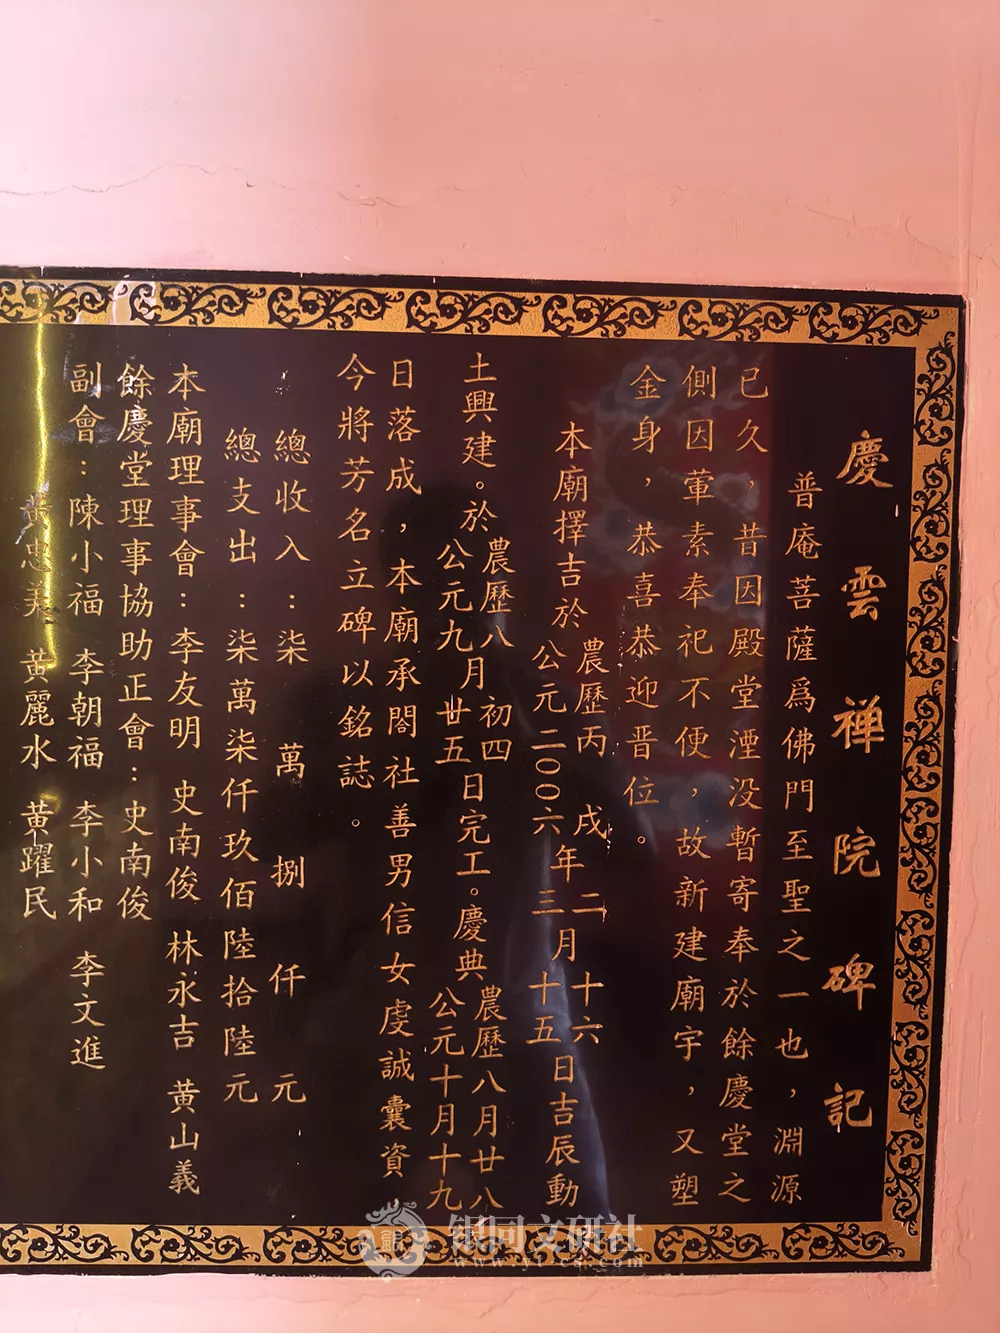 慶雲禅院碑記
普庵菩薩爲佛門至聖之一也，淵源
已久，昔因殿堂湮没暫寄奉於餘慶堂之
側因葷素奉祀不便，故新建廟宇，又塑
金身，恭喜恭迎晋位。
本廟擇吉於農歷丙戌年二月十六日吉辰動
公元二00六三十五
土興建。於農歷八月初四日完工。慶典農歷八月廿八
公元九廿五公元十月十九
日落成，本廟承閤社善男信女虔誠囊資
今將芳名立碑以銘誌。
總收入：柒萬捌仟元
總支出：柒萬柒仟玖佰陸拾陸元
本廟理事會：李友明 史南俊 林永吉 黄山義
餘慶堂理事協助正會：史南俊
副會：陳小福 李朝福 李小和 李文進
黄忠美 黄麗水 黄躍民
银同文研社
www.yt-cs.com